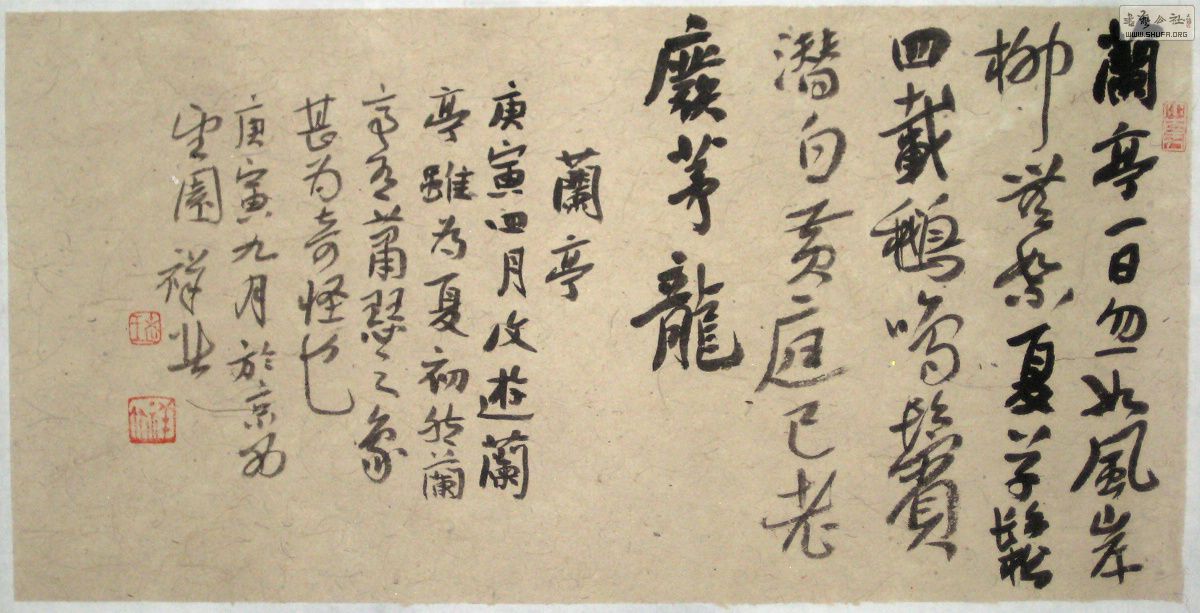 蘭亭一日忽如風岸
柳夏草鬆
四載鵝鳴鬢
潛白黃庭已老
茅龍
蘭亭
庚寅四月遊蘭
亭雖為夏初然蘭
亭有蕭瑟之象
甚為奇怪也
庚寅九月於京西
望園祥业
书法公社
WWW.SHUFA.ORG